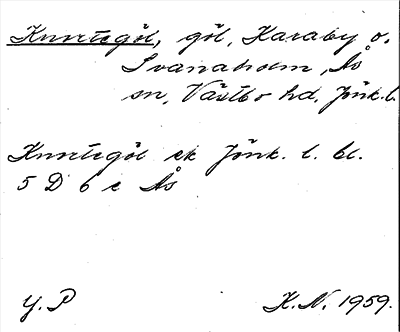 Knutegöl, göl, Karaby o.
Svanaholm, Ås
sn, Västbo hd. Jönk. l.
Knutegöl ek Jönk. l. bl.
5 D 6 e Ås
Y. P K. N. 1959.